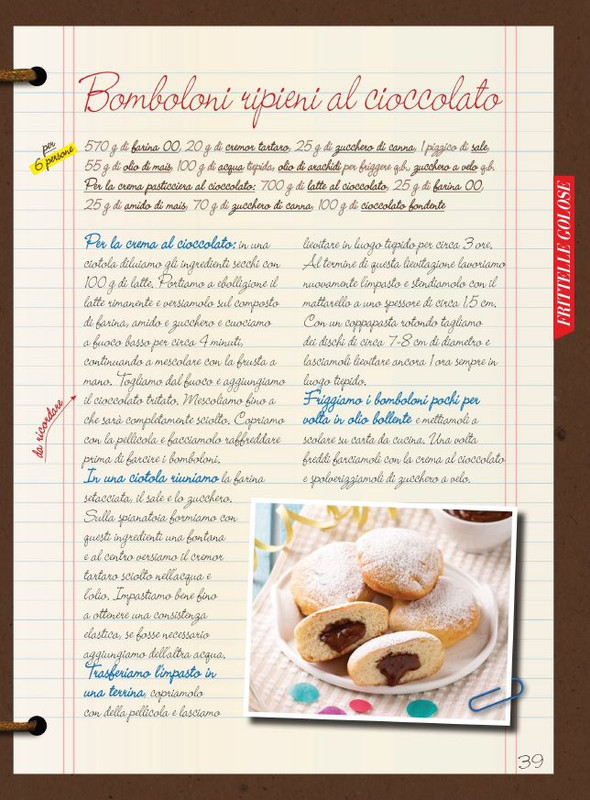 Bomboloni ripieni al cioccolato
per
6 persone
570 g di farina 00, 20 g di cremor tartaro, 25 g di zucchero di canna, 1 pizzico di sale,
55 g di olio di mais, 100 g di acqua tiepida, olio di arachidi per friggere q.b., zucchero a velo q.b.
Per la crema pasticciera al cioccolato: 700 g di latte al cioccolato, 25 g di farina 00,
25 g di amido di mais, 70 g di zucchero di canna, 100 g di cioccolato fondente
Per la crema al cioccolato: in una
ciotola diluiamo gli ingredienti secchi con
100 g di latte. Portiamo a ebollizione il
latte rimanente e versiamolo sul composto
di farina, amido e zucchero e cuociamo
a fuoco basso per circa 4 minuti,
continuando a mescolare con la frusta a
mano. Togliamo dal fuoco e aggiungiamo
il cioccolato tritato. Mescoliamo fino a
che sarà completamente sciolto. Copriamo
con la pellicola e facciamolo raffreddare
prima di farcire i bomboloni.
In una ciotola riuniamo la farina
setacciata, il sale e lo zucchero.
Sulla spianatoia formiamo con
questi ingredienti una fontana
e al centro versiamo il cremor
tartaro sciolto nell'acqua e
l'olio. Impastiamo bene fino
a ottenere una consistenza
elastica, se fosse necessario
aggiungiamo dell'altra acqua.
Trasferiamo l'impasto in
una terrina, copriamolo
con della pellicola e lasciamo
lievitare in luogo tiepido per circa 3 ore.
Al termine di questa lievitazione lavoriamo
nuovamente l'impasto e stendiamolo con il
mattarello a uno spessore di circa 1,5 cm.
Con un coppapasta rotondo tagliamo
dei dischi di circa 7-8 cm di diametro e
lasciamoli lievitare ancora 1 ora sempre in
luogo tiepido.
Friggiamo i bomboloni pochi per
volta in olio bollente e mettiamoli a
scolare su carta da cucina. Una volta
freddi farciamoli con la crema al cioccolato
e spolverizziamoli di zucchero a velo.
da ricordare
FRITTELLE GOLOSE
39